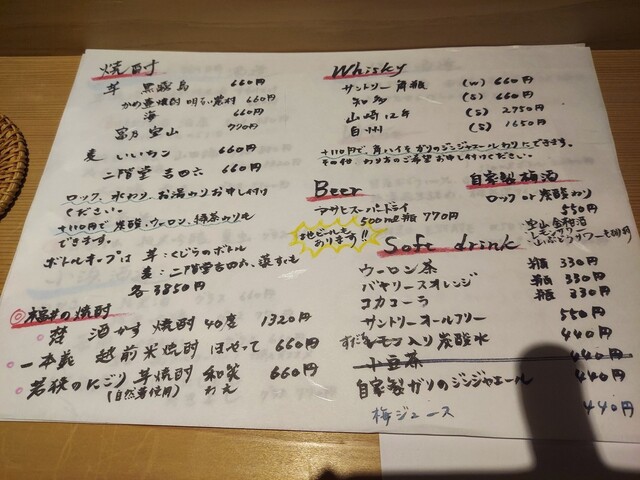 焼酎
芋 黒霧島 660円
かめ壷焼酎 明るい農村 660円
海 660円
富乃宝山 770円
麦 いいちこ 660円
二階堂 吉四六 660円
ロック、水わり、お湯わりお申し付け
ください。
+110円で炭酸、ウーロン、緑茶わりも
できます。
ボトルキープは 芋：くじらのボトル
麦：二階堂吉四六、
各3850円
◎福井の焼酎
酒かす焼酎 40度 1320円
一本義 越前米焼酎 ほやって 660円
若狭のにごり芋焼酎 和笑 660円
(自然薯使用) わえ
Whisky
サントリー 角瓶 (W) 660円
知多 (S) 660円
山崎12年 (S) 2750円
白州 (S) 1650円
+110円で、角ハイをガリのジンジャエールわりにできます。
その他 わり方のご希望お申し付けください。
Beer
アサヒスーパードライ
500ml瓶 770円
地ビールも
あります!!
自家製梅酒
ロック or 炭酸わり
550円
Soft drink
ウーロン茶 瓶 330円
バヤリースオレンジ 瓶 330円
コカコーラ 瓶 330円
サントリーオールフリー 550円
レモン入り炭酸水 440円
小豆茶 440円
自家製ガリのジンジャエール 440円
梅ジュース 440円